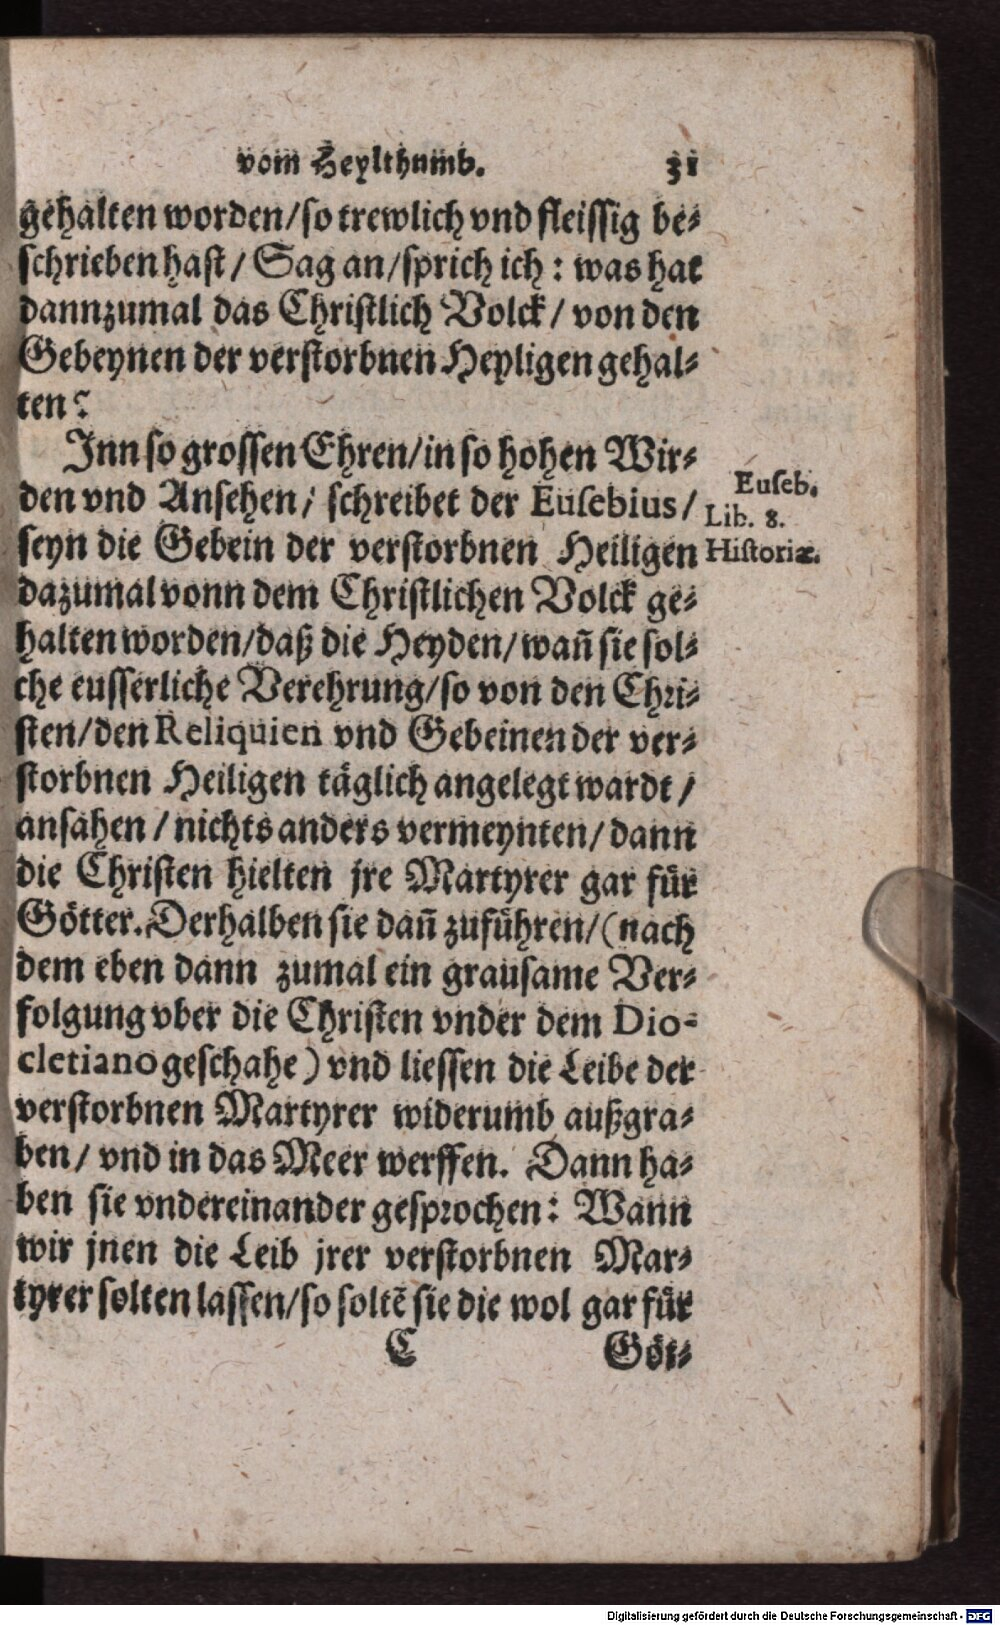 vom Heylthumb. 31
gehalten worden/so trewlich vnd fleissig be-
schrieben hast/ Sag an/sprich ich: was hat
dannzumal das Christlich Volck/ von den
Gebeynen der verstorbnen Heyligen gehal-
ten?
Inn so grossen Ehren/in so hohen Wir-
den vnd Ansehen/ schreibet der Eusebius/
seyn die Gebein der verstorbnen Heiligen
dazumal vonn dem Christlichen Volck ge-
halten worden/daß die Heyden/wañ sie sol-
che eusserliche Verehrung/so von den Chri-
sten/den Reliquien vnd Gebeinen der ver-
storbnen Heiligen täglich angelegt wardt/
ansahen/nichts anders vermeynten/dann
die Christen hielten jre Martyrer gar für
Götter. Derhalben sie dañ zuführen/(nach
dem eben dann zumal ein grausame Ver-
folgung vber die Christen vnder dem Dio-
cletiano geschahe) vnd liessen die Leibe der
verstorbnen Martyrer widerumb außgra-
ben/ vnd in das Meer werffen. Dann ha-
ben sie vndereinander gesprochen: Wann
wir jnen die Leib jrer verstorbnen Mar-
tyrer solten lassen/so soltẽ sie die wol gar für
C Göt-
Euseb.
Lib. 8.
Historiæ.
Digitalisierung gefördert durch die Deutsche Forschungsgemeinschaft - DFG